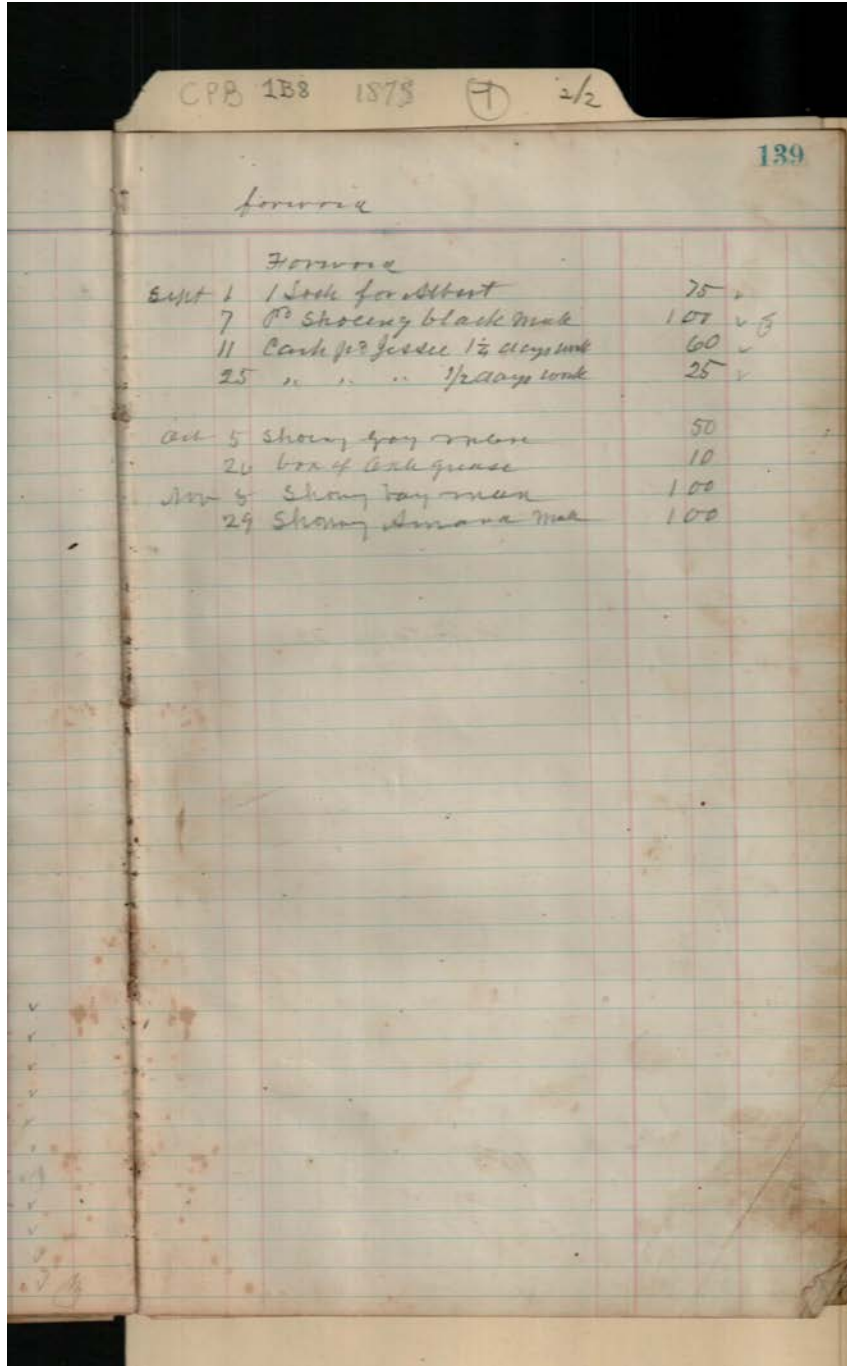 CPB 1B8 1878 1 2/2
139
forword
Forword
Sept 1 1 Sock for Albert 75
7 pd Shoeing black Mule 1 00
11 Cash pd Jessee 1½ days work 60
25 " " " 1/2 days work 25
Oct 5 Shoeing gray mare 50
26 box of axle grease 10
Nov 5 Shoeing bay mare 1 00
29 Shoeing Mule 1 00